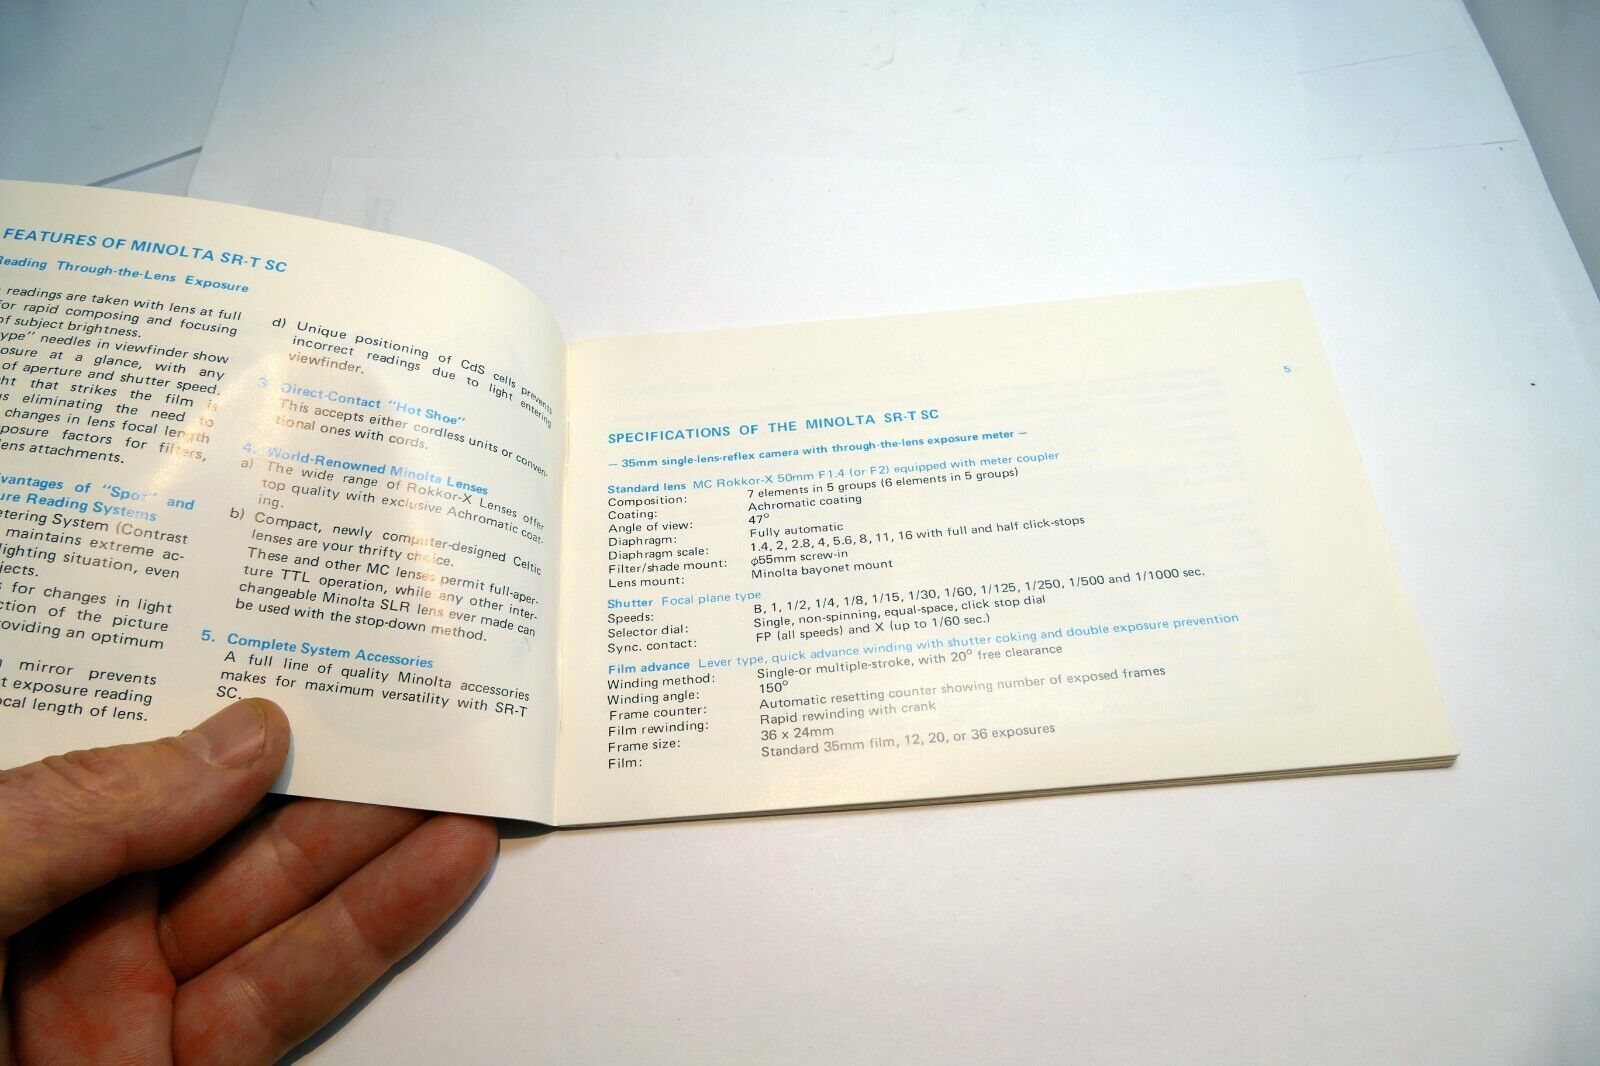 FEATURES OF MINOLTA SR-T SC
Reading Through-the-Lens Exposure
readings are taken with lens at full
for rapid composing and focusing
of subject brightness.
type" needles in viewfinder show
osure at a glance, with any
of aperture and shutter speed.
ht that strikes the film is
us eliminating the need to
changes in lens focal length
posure factors for filters,
lens attachments.
vantages of "Spot" and
ure Reading Systems
etering System (Contrast
maintains extreme ac-
lighting situation, even
jects.
s for changes in light
ction of the picture
roviding an optimum
mirror prevents
t exposure reading
ocal length of lens.
d) Unique positioning of CdS cells prevents
incorrect readings due to light entering
viewfinder.
3. Direct-Contact "Hot Shoe"
This accepts either cordless units or conven-
tional ones with cords.
4. World-Renowned Minolta Lenses
a) The wide range of Rokkor-X Lenses offer
top quality with exclusive Achromatic coat-
ing.
b) Compact, newly computer-designed Celtic
lenses are your thrifty choice.
These and other MC lenses permit full-aper-
ture TTL operation, while any other inter-
changeable Minolta SLR lens ever made can
be used with the stop-down method.
5. Complete System Accessories
A full line of quality Minolta accessories
makes for maximum versatility with SR-T
SC.
5
SPECIFICATIONS OF THE MINOLTA SR-T SC
— 35mm single-lens-reflex camera with through-the-lens exposure meter —
Standard lens MC Rokkor-X 50mm F1.4 (or F2) equipped with meter coupler
Composition: 7 elements in 5 groups (6 elements in 5 groups)
Coating: Achromatic coating
Angle of view: 47°
Diaphragm: Fully automatic
Diaphragm scale: 1.4, 2, 2.8, 4, 5.6, 8, 11, 16 with full and half click-stops
Filter/shade mount: φ55mm screw-in
Lens mount: Minolta bayonet mount
Shutter Focal plane type
Speeds: B, 1, 1/2, 1/4, 1/8, 1/15, 1/30, 1/60, 1/125, 1/250, 1/500 and 1/1000 sec.
Selector dial: Single, non-spinning, equal-space, click stop dial
Sync. contact: FP (all speeds) and X (up to 1/60 sec.)
Film advance Lever type, quick advance winding with shutter coking and double exposure prevention
Winding method: Single-or multiple-stroke, with 20° free clearance
Winding angle: 150°
Frame counter: Automatic resetting counter showing number of exposed frames
Film rewinding: Rapid rewinding with crank
Frame size: 36 x 24mm
Film: Standard 35mm film, 12, 20, or 36 exposures